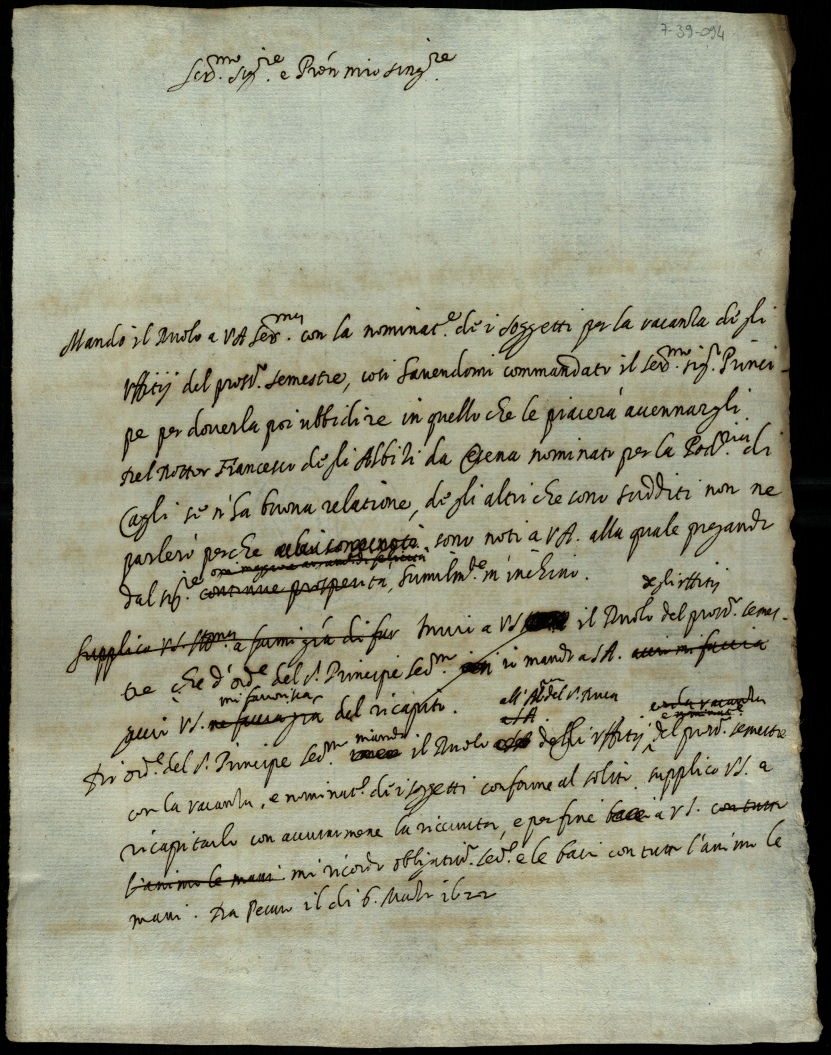 7-39-094
Ser.mo Sig.re e Pron mio sing.re
Mando il Ruolo a VA Ser.ma con la nominat.e de i soggetti per la vacanza degli
Uffitij del pross.o semestre, così havendomi commandato il ser.mo sig.r Princi-
pe per doverla poi ubbidire in quello che le piacerà accennargli.
Del Dottor Francesco degli Albizi da Cesena nominato per la Pod.ria di
Cagli se n'ha buona relatione, degli altri che sono sudditi non ne
parlerò perche sono noti a VA. alla quale pregando
dal sig.re continue prosperità, humilm.te m'inchino.
degli uffitij
Supplico VS. a far Invii a VS il Ruolo del pross.o semes-
tre che d'ord.e del S. Principe Ser.mo si manda a SA. accio mi faccia
mi favorisca
VS. ne faccia già del ricapito.
all'A. del S. Duca e la vacanza
SA e nominat.e
D'ord.e del S. Principe Ser.mo mando il Ruolo degli uffitij del pross.o semestre
con la vacanza, e nominat.e de i soggetti conforme al solito, supplico VS. a
ricapitarlo con avvisarmene la ricevuta, e per fine bacci a VS. con tutto
l'animo le mani mi ricordo obligatiss.o ser.e e le baci con tutto l'animo le
mani. Da Pesaro il di 6. 1622